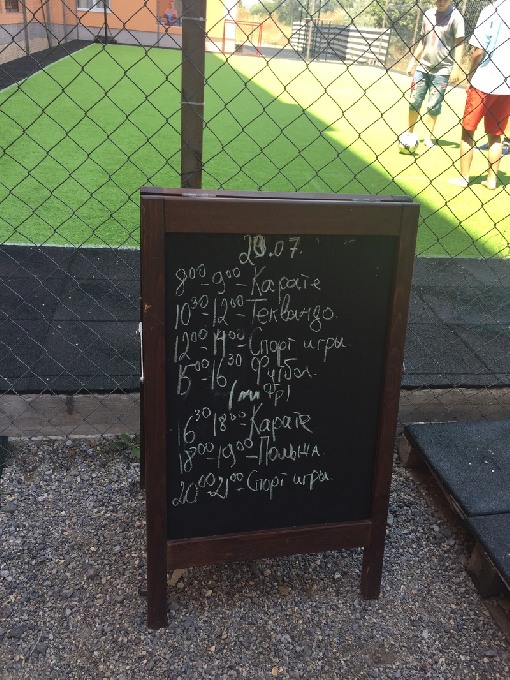 20.07.
8⁰⁰-9⁰⁰-Карате
10³⁰-12⁰⁰-Теквандо.
12⁰⁰-14⁰⁰-Спорт игры
15⁰⁰-16³⁰ Футбол.
16³⁰ 18⁰⁰-Карате
18⁰⁰-19⁰⁰-Польша.
20⁰⁰-21⁰⁰-Спорт игры.